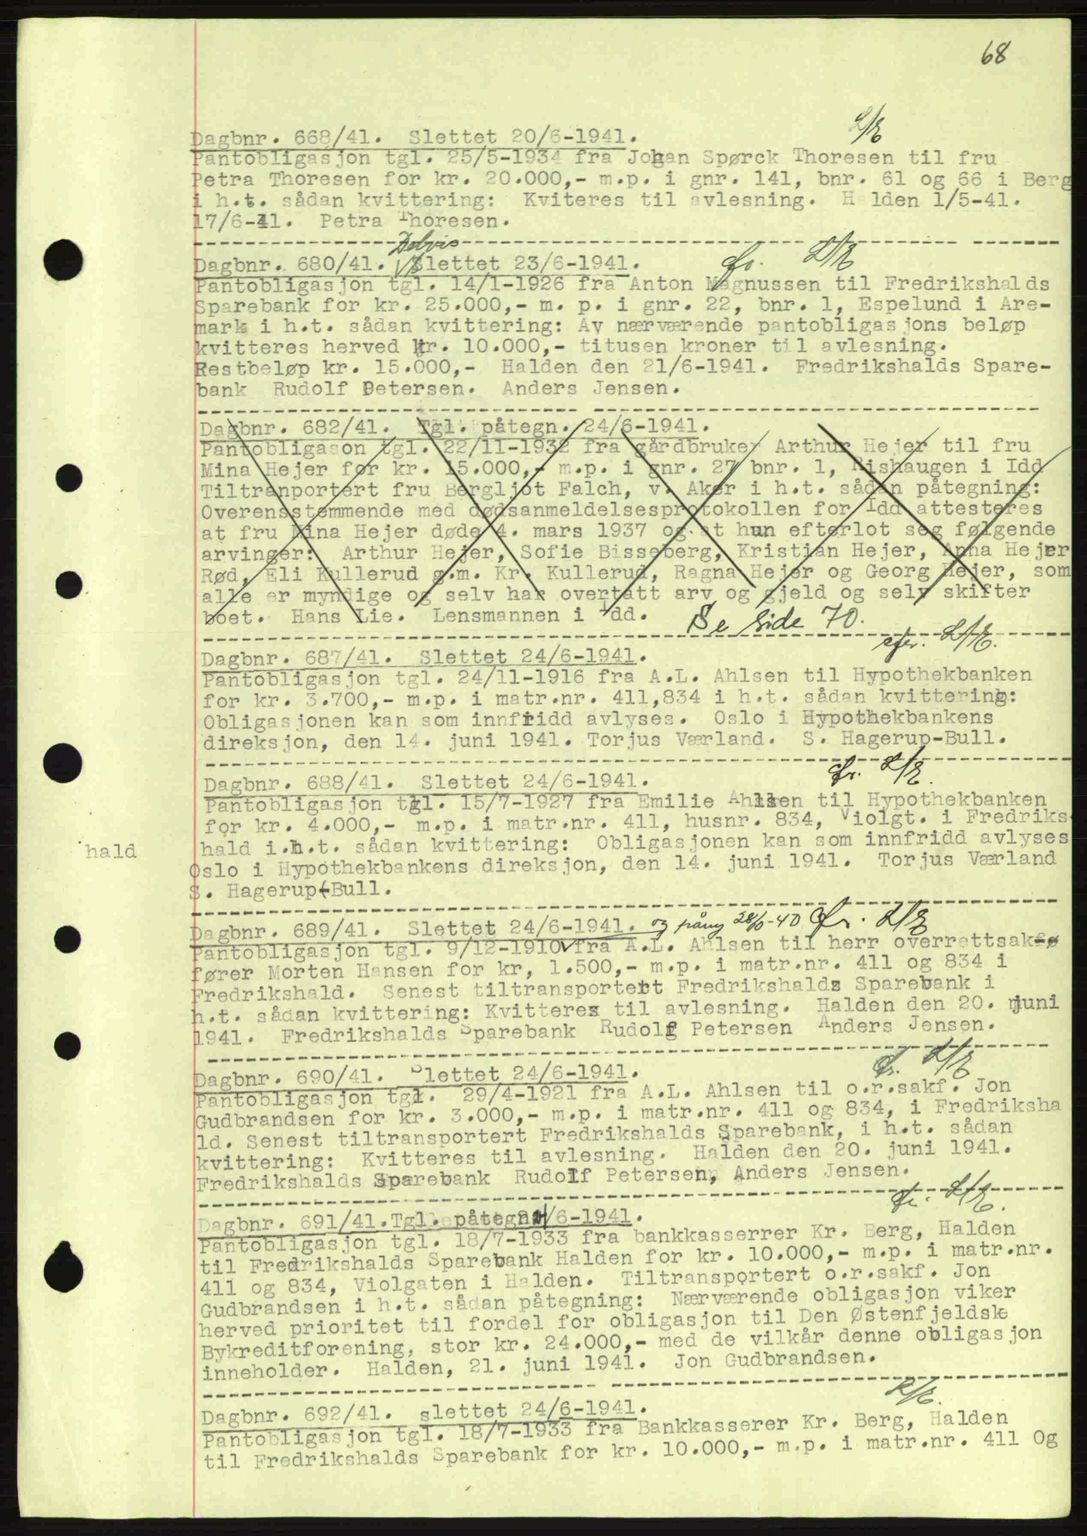 68
Dagbnr. 668/41. Slettet 20/6-1941.
Pantobligasjon tgl. 25/5-1934 fra Johan Spørck Thoresen til fru
Petra Thoresen for kr. 20.000,- m.p. i gnr. 141, bnr. 61 og 66 i Berg
i h.t. sådan kvittering: Kviteres til avlesning. Halden 1/5-41.
17/6-41. Petra Thoresen.
Delvis
Dagbnr. 680/41. Slettet 23/6-1941.
Pantobligasjon tgl. 14/1-1926 fra Anton Magnussen til Fredrikshalds
Sparebank for kr. 25.000,- m. p. i gnr. 22, bnr. 1, Espelund i Are-
mark i h.t. sådan kvittering: Av nærværende pantobligasjons beløp
kvitteres herved kr. 10.000,- titusen kroner til avlesning.
Restbeløp kr. 15.000,- Halden den 21/6-1941. Fredrikshalds Spare-
bank Rudolf Petersen. Anders Jensen.
Dagbnr. 682/41. Tgl. påtegn. 24/6-1941.
Pantobligason tgl. 22/11-1932 fra gårdbruker Arthur Hejer til fru
Mina Hejer for kr. 15.000,- m.p. i gnr. 27 bnr. 1, Rishaugen i Idd
Tiltranportert fru Bergljot Falch, v. Aker i h.t. sådan påtegning:
Overensstemmende med dødsanmeldelsesprotokollen for Idd attesteres
at fru Mina Hejer døde 4. mars 1937 og at hun efterlot seg følgende
arvinger: Arthur Hejer, Sofie Bisseberg, Kristian Hejer, Anna Hejer
Rød, Eli Kullerud g.m. Kr. Kullerud, Ragna Hejer og Georg Hejer, som
alle er myndige og selv har overtatt arv og gjeld og selv skifter
boet. Hans Lie. Lensmannen i Idd. Se side 70.
Dagbnr. 687/41. Slettet 24/6-1941.
Pantobligasjon tgl. 24/11-1916 fra A.L. Ahlsen til Hypothekbanken
for kr. 3.700,- m.p. i matr.nr. 411,834 i h.t. sådan kvittering:
Obligasjonen kan som innfridd avlyses. Oslo i Hypothekbankens
direksjon, den 14. juni 1941. Torjus Værland. S. Hagerup-Bull.
Dagbnr. 688/41. Slettet 24/6-1941.
Pantobligasjon tgl. 15/7-1927 fra Emilie Ahlsen til Hypothekbanken
for kr. 4.000,- m.p. i matr.nr. 411, husnr. 834, Violgt. i Fredriks-
hald
hald i.h.t. sådan kvittering: Obligasjonen kan som innfridd avlyses
Oslo i Hypothekbankens direksjon, den 14. juni 1941. Torjus Værland
S. Hagerup-Bull.
Dagbnr. 689/41. Slettet 24/6-1941. og 28/6-40
Pantobligasjon tgl. 9/12-1910 fra A.L. Ahlsen til herr overrettsakfø
fører Morten Hansen for kr, 1.500,- m.p. i matr.nr. 411 og 834 i
Fredrikshald. Senest tiltransportert Fredrikshalds Sparebank i
h.t. sådan kvittering: Kvitteres til avlesning. Halden den 20. juni
1941. Fredrikshalds Sparebank Rudolf Petersen Anders Jensen.
Dagbnr. 690/41. Slettet 24/6-1941.
Pantobligasjon tgl. 29/4-1921 fra A.L. Ahlsen til o.r.sakf. Jon
Gudbrandsen for kr. 3.000,- m.p. i matr.nr. 411 og 834, i Fredriksha
ld. Senest tiltransportert Fredrikshalds Sparebank, i h.t. sådan
kvittering: Kvitteres til avlesning. Halden den 20. juni 1941.
Fredrikshalds Sparebank Rudolf Petersen, Anders Jensen.
Dagbnr. 691/41. Tgl. påtegn 24/6-1941.
Pantobligasjon tgl. 18/7-1933 fra bankkasserrer Kr. Berg, Halden
til Fredrikshalds Sparebank Halden for kr. 10.000,- m.p. i matr.nr.
411 og 834, Violgaten i Halden. Tiltransportert o.r.sakf. Jon
Gudbrandsen i h.t. sådan påtegning: Nærværende obligasjon viker
herved prioritet til fordel for obligasjon til Den Østenfjeldske
Bykreditforening, stor kr. 24.000,- med de vilkår denne obligasjon
inneholder. Halden, 21. juni 1941. Jon Gudbrandsen.
Dagbnr. 692/41. slettet 24/6-1941.
Pantobligasjon tgl. 18/7-1933 fra Bankkasserer Kr. Berg, Halden
til Fredrikshalds Sparebank for kr. 10.000,- m.p. i matr.nr. 411 Og